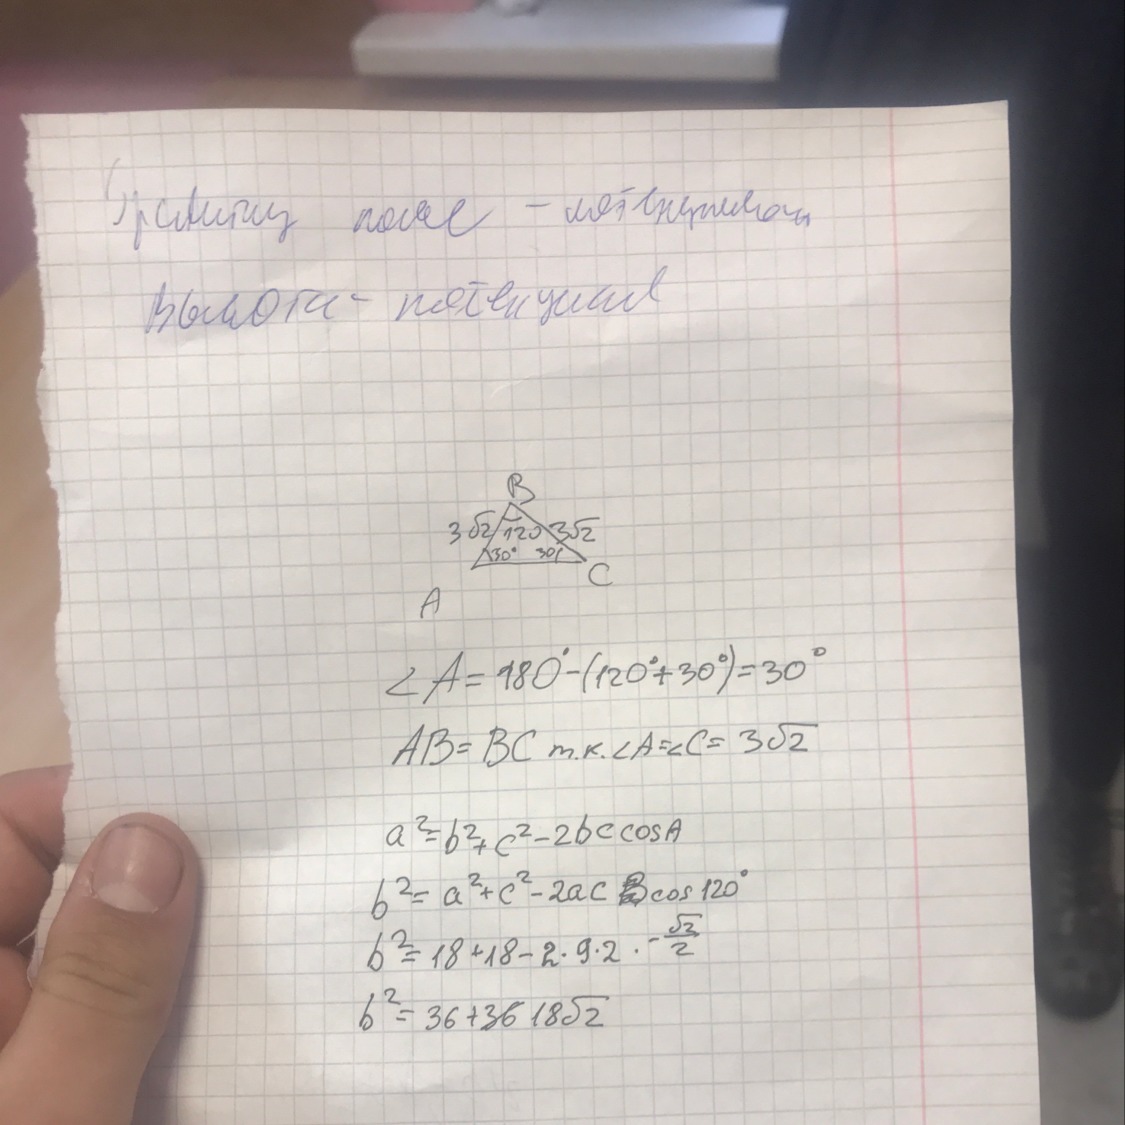 поле -
Высота -
B
3√2 120 3√2
30° 30
C
A
∠A = 180° - (120° + 30°) = 30°
AB = BC т.к. ∠A = ∠C = 3√2
a² = b² + c² - 2bc cosA
b² = a² + c² - 2ac cos 120°
b² = 18 + 18 - 2 · 9 · 2 · - √2/2
b² = 36 + 36 18√2